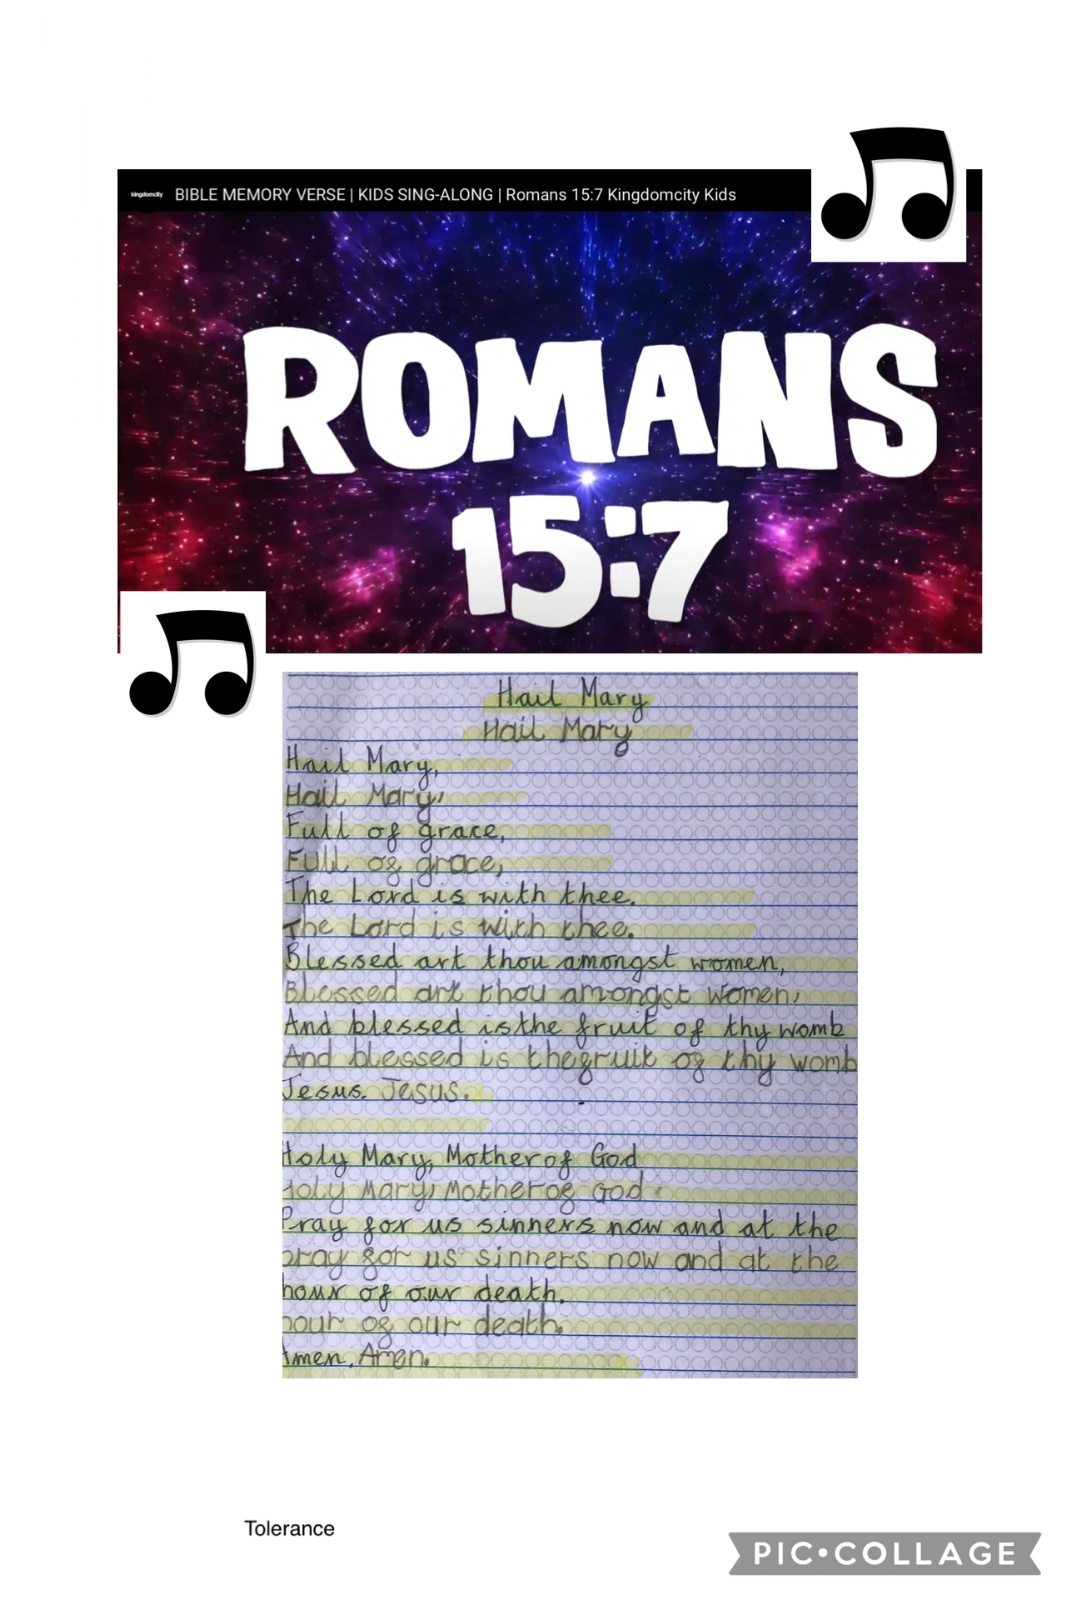 kingdomcity BIBLE MEMORY VERSE | KIDS SING-ALONG | Romans 15:7 Kingdomcity Kids
ROMANS
15:7
Hail Mary
Hail Mary
Hail Mary,
Hail Mary,
Full of grace,
Full of grace,
The Lord is with thee.
The Lord is with thee.
Blessed art thou amongst women,
Blessed art thou amongst women,
And blessed is the fruit of thy womb
And blessed is the fruit of thy womb
Jesus. Jesus.
Holy Mary, Mother of God
Holy Mary, Mother of God.
Pray for us sinners now and at the
pray for us sinners now and at the
hour of our death.
hour of our death.
Amen. Amen.
Tolerance
PIC•COLLAGE